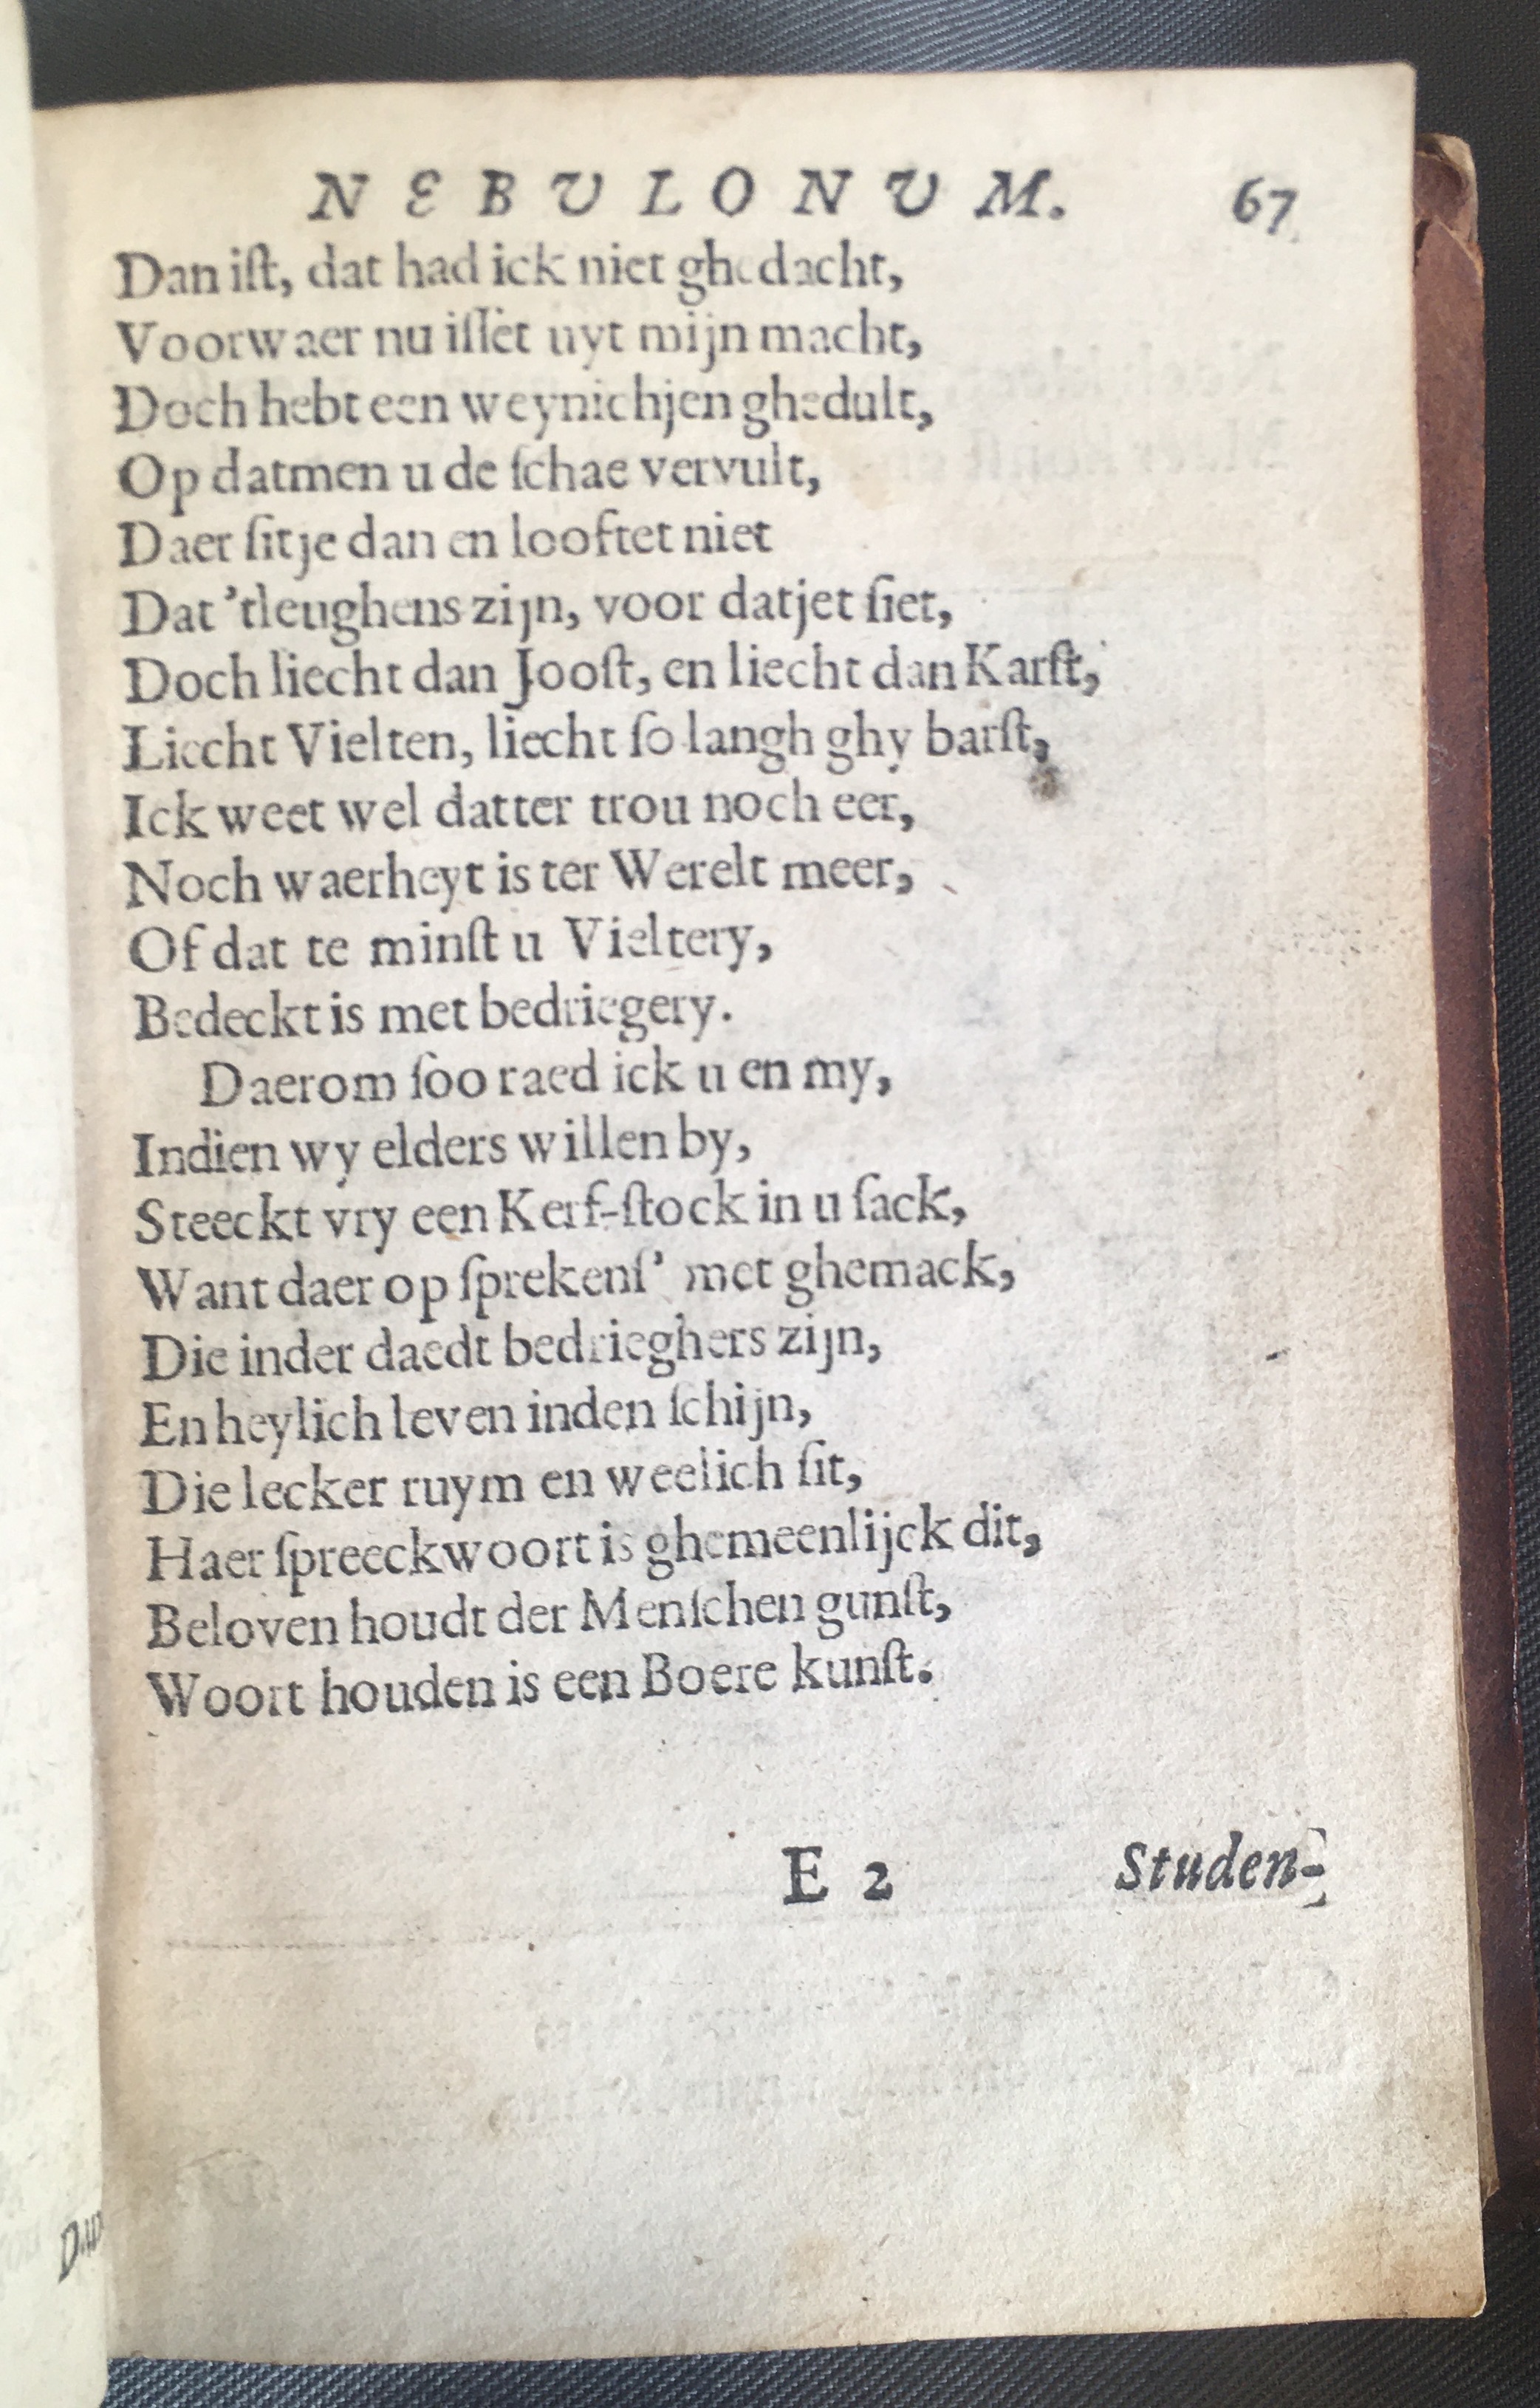 NEBULONUM. 67
Dan iſt, dat had ick niet ghedacht,
Voorwaer nu iſſet uyt mijn macht,
Doch hebt een weynichjen ghedult,
Op datmen u de ſchae vervult,
Daer ſitje dan en looftet niet
Dat 'tleughens zijn, voor datjet ſiet,
Doch liecht dan Jooſt, en liecht dan Karſt,
Liecht Vielten, liecht ſo langh ghy barſt,
Ick weet wel datter trou noch eer,
Noch waerheyt is ter Werelt meer,
Of dat te minſt u Vieltery,
Bedeckt is met bedriegery.
Daerom ſoo raed ick u en my,
Indien wy elders willen by,
Steeckt vry een Kerf-ſtock in u ſack,
Want daer op ſprekenſ' met ghemack,
Die inder daedt bedrieghers zijn,
En heylich leven inden ſchijn,
Die lecker ruym en weelich ſit,
Haer ſpreeckwoort is ghemeenlijck dit,
Beloven houdt der Menſchen gunſt,
Woort houden is een Boere kunſt.
E 2 Studen-